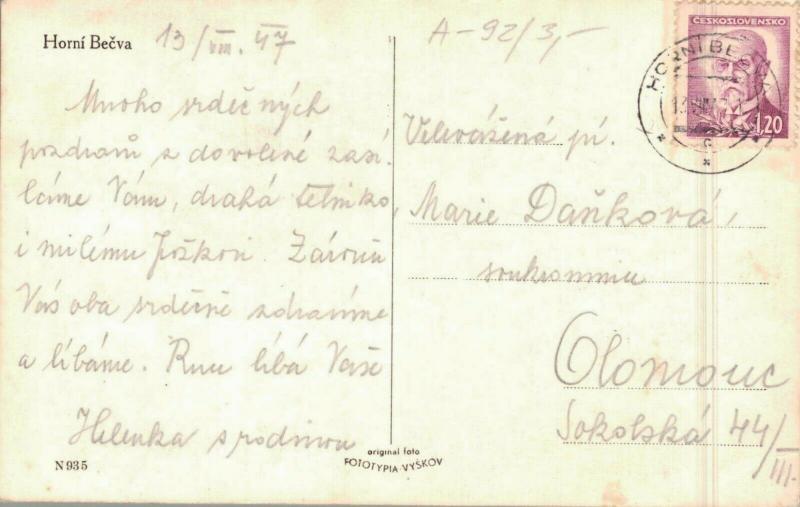 Horní Bečva 13/VIII. 47
Mnoho srdečných
pozdravů z dovolené zasí-
láme Vám, drahá tetinko,
i milému Joškovi. Zároveň
Vás oba srdečně zdravíme
a líbáme. Ruce líbá Vaše
Helenka s rodinou
N 935
original foto
FOTOTYPIA-VYŠKOV
A-92/3,-
ČESKOSLOVENSKO
1.20
HORNÍ BEČVA
c
Velevážená pí.
Marie Daňková,
soukromnice
Olomouc
Sokolská 44/III.